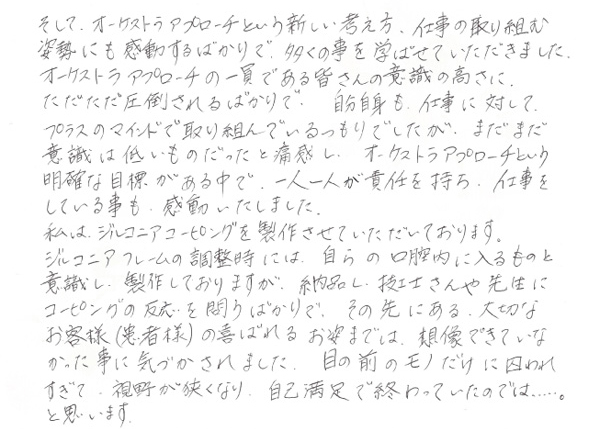 そして、オーケストラアプローチという新しい考え方、仕事の取り組む
姿勢にも感動するばかりで、多くの事を学ばせていただきました。
オーケストラアプローチの一員である皆さんの意識の高さに、
ただただ圧倒されるばかりで、自分自身も、仕事に対して、
プラスのマインドで取り組んでいるつもりでしたが、まだまだ
意識は低いものだったと痛感し、オーケストラアプローチという
明確な目標がある中で、一人一人が責任を持ち、仕事を
している事も、感動いたしました。
私は、ジルコニアコーピングを製作させていただいております。
ジルコニアフレームの調整時には、自らの口腔内に入るものと
意識し、製作しておりますが、納品し、技工士さんや先生に
コーピングの反応を聞くばかりで、その先にある、大切な
お客様(患者様)の喜ばれるお姿までは、想像できていな
かった事に気づかされました。目の前のモノだけに囚われ
すぎて、視野が狭くなり、自己満足で終わっていたのでは……。
と思います。